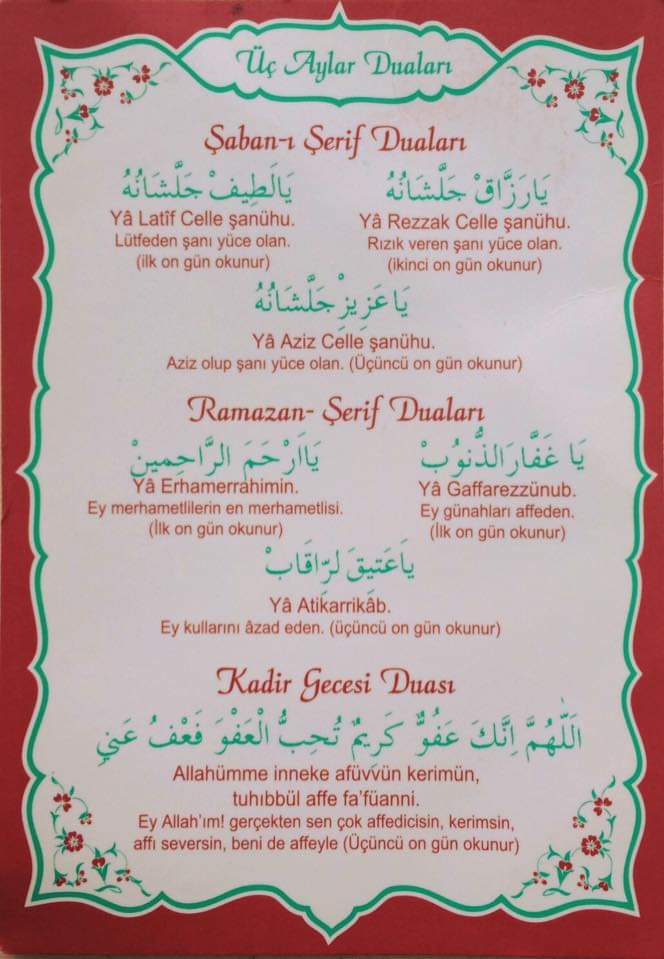 Üç Aylar Duaları
Şaban-ı Şerif Duaları
يَالَطِيفْ جَلَّشَانُهُ
Yâ Latîf Celle şanühu.
Lütfeden şanı yüce olan.
(ilk on gün okunur)
يَارَزَّاقْ جَلَّشَانُهُ
Yâ Rezzak Celle şanühu.
Rızık veren şanı yüce olan.
(ikinci on gün okunur)
يَاعَزِيزِْ جَلَّشَانُهُ
Yâ Aziz Celle şanühu.
Aziz olup şanı yüce olan. (Üçüncü on gün okunur)
Ramazan- Şerif Duaları
يَااَرْحَمَ الرَّاحِمِينْ
Yâ Erhamerrahimin.
Ey merhametlilerin en merhametlisi.
(İlk on gün okunur)
يَا غَفَّارَالذُّنوُبْ
Yâ Gaffarezzünub.
Ey günahları affeden.
(İlk on gün okunur)
يَاعَتِيقَ لرِّاقَابْ
Yâ Atikarrikâb.
Ey kullarını âzad eden. (üçüncü on gün okunur)
Kadir Gecesi Duası
اَللّٰهُمَّ اِنَّكَ عَفُوٌّ كَرِيمٌ تُحِبُّ الْعَفْوَ فَعْفُ عَنيِّ
Allahümme inneke afüvvün kerimün,
tuhıbbül affe fa’füanni.
Ey Allah’ım! gerçekten sen çok affedicisin, kerimsin,
affı seversin, beni de affeyle (Üçüncü on gün okunur)